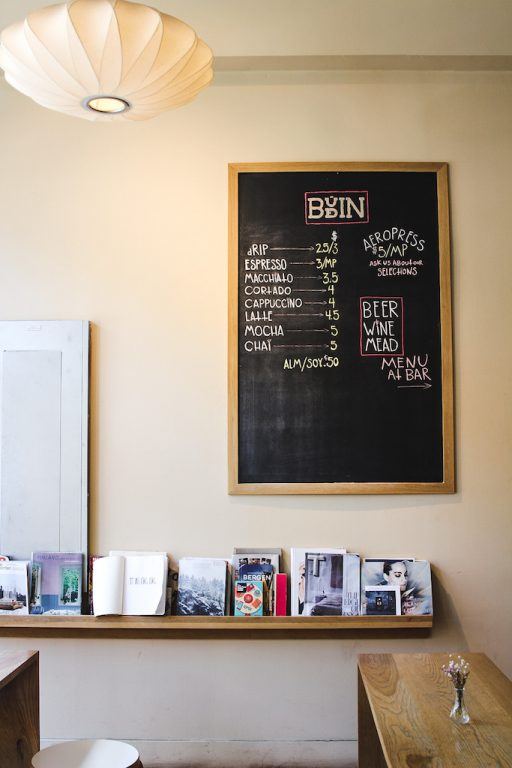 BUDIN
$
dRIP 2.5/3
ESPRESSO 3/MP
MACCHIATO 3.5
CORTADO 4
CAPPUCCINO 4
LATTE 4.5
MOCHA 5
CHAI 5
ALM/SOY $.50
AEROPRESS
$5/MP
ASK US ABOUT OUR
SELECTIONS
BEER
WINE
MEAD
MENU
At BAR
BERGEN